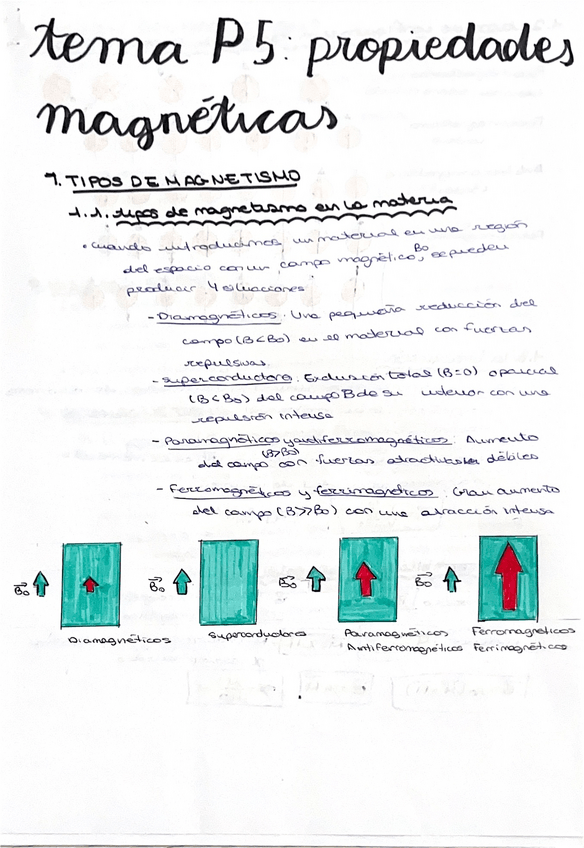 tema P5: propiedades
magnéticas
1. TIPOS DE MAGNETISMO
1.1. tipos de magnetismo en la materia
• Cuando introducimos un material en una región
del espacio con un campo magnético, B₀ se pueden
producir 4 situaciones
- Diamagnéticos: Una pequeña reducción del
campo (B<B₀) en el material con fuerzas
repulsivas.
- Superconductora. Exclusión total (B=0) o parcial
(B<B₀) del campo B de su interior con una
repulsión intensa
- Paramagnéticos y antiferromagnéticos: Aumento
(B>B₀)
del campo con fuerzas atractivas débiles
- Ferromagnéticos y ferrimagnéticos: Gran aumento
del campo (B>>B₀) con una atracción intensa
B₀ B₀ B₀ B₀
Diamagnéticos Superconductores Paramagnéticos Ferromagnéticos
Antiferromagnéticos Ferrimagnéticos